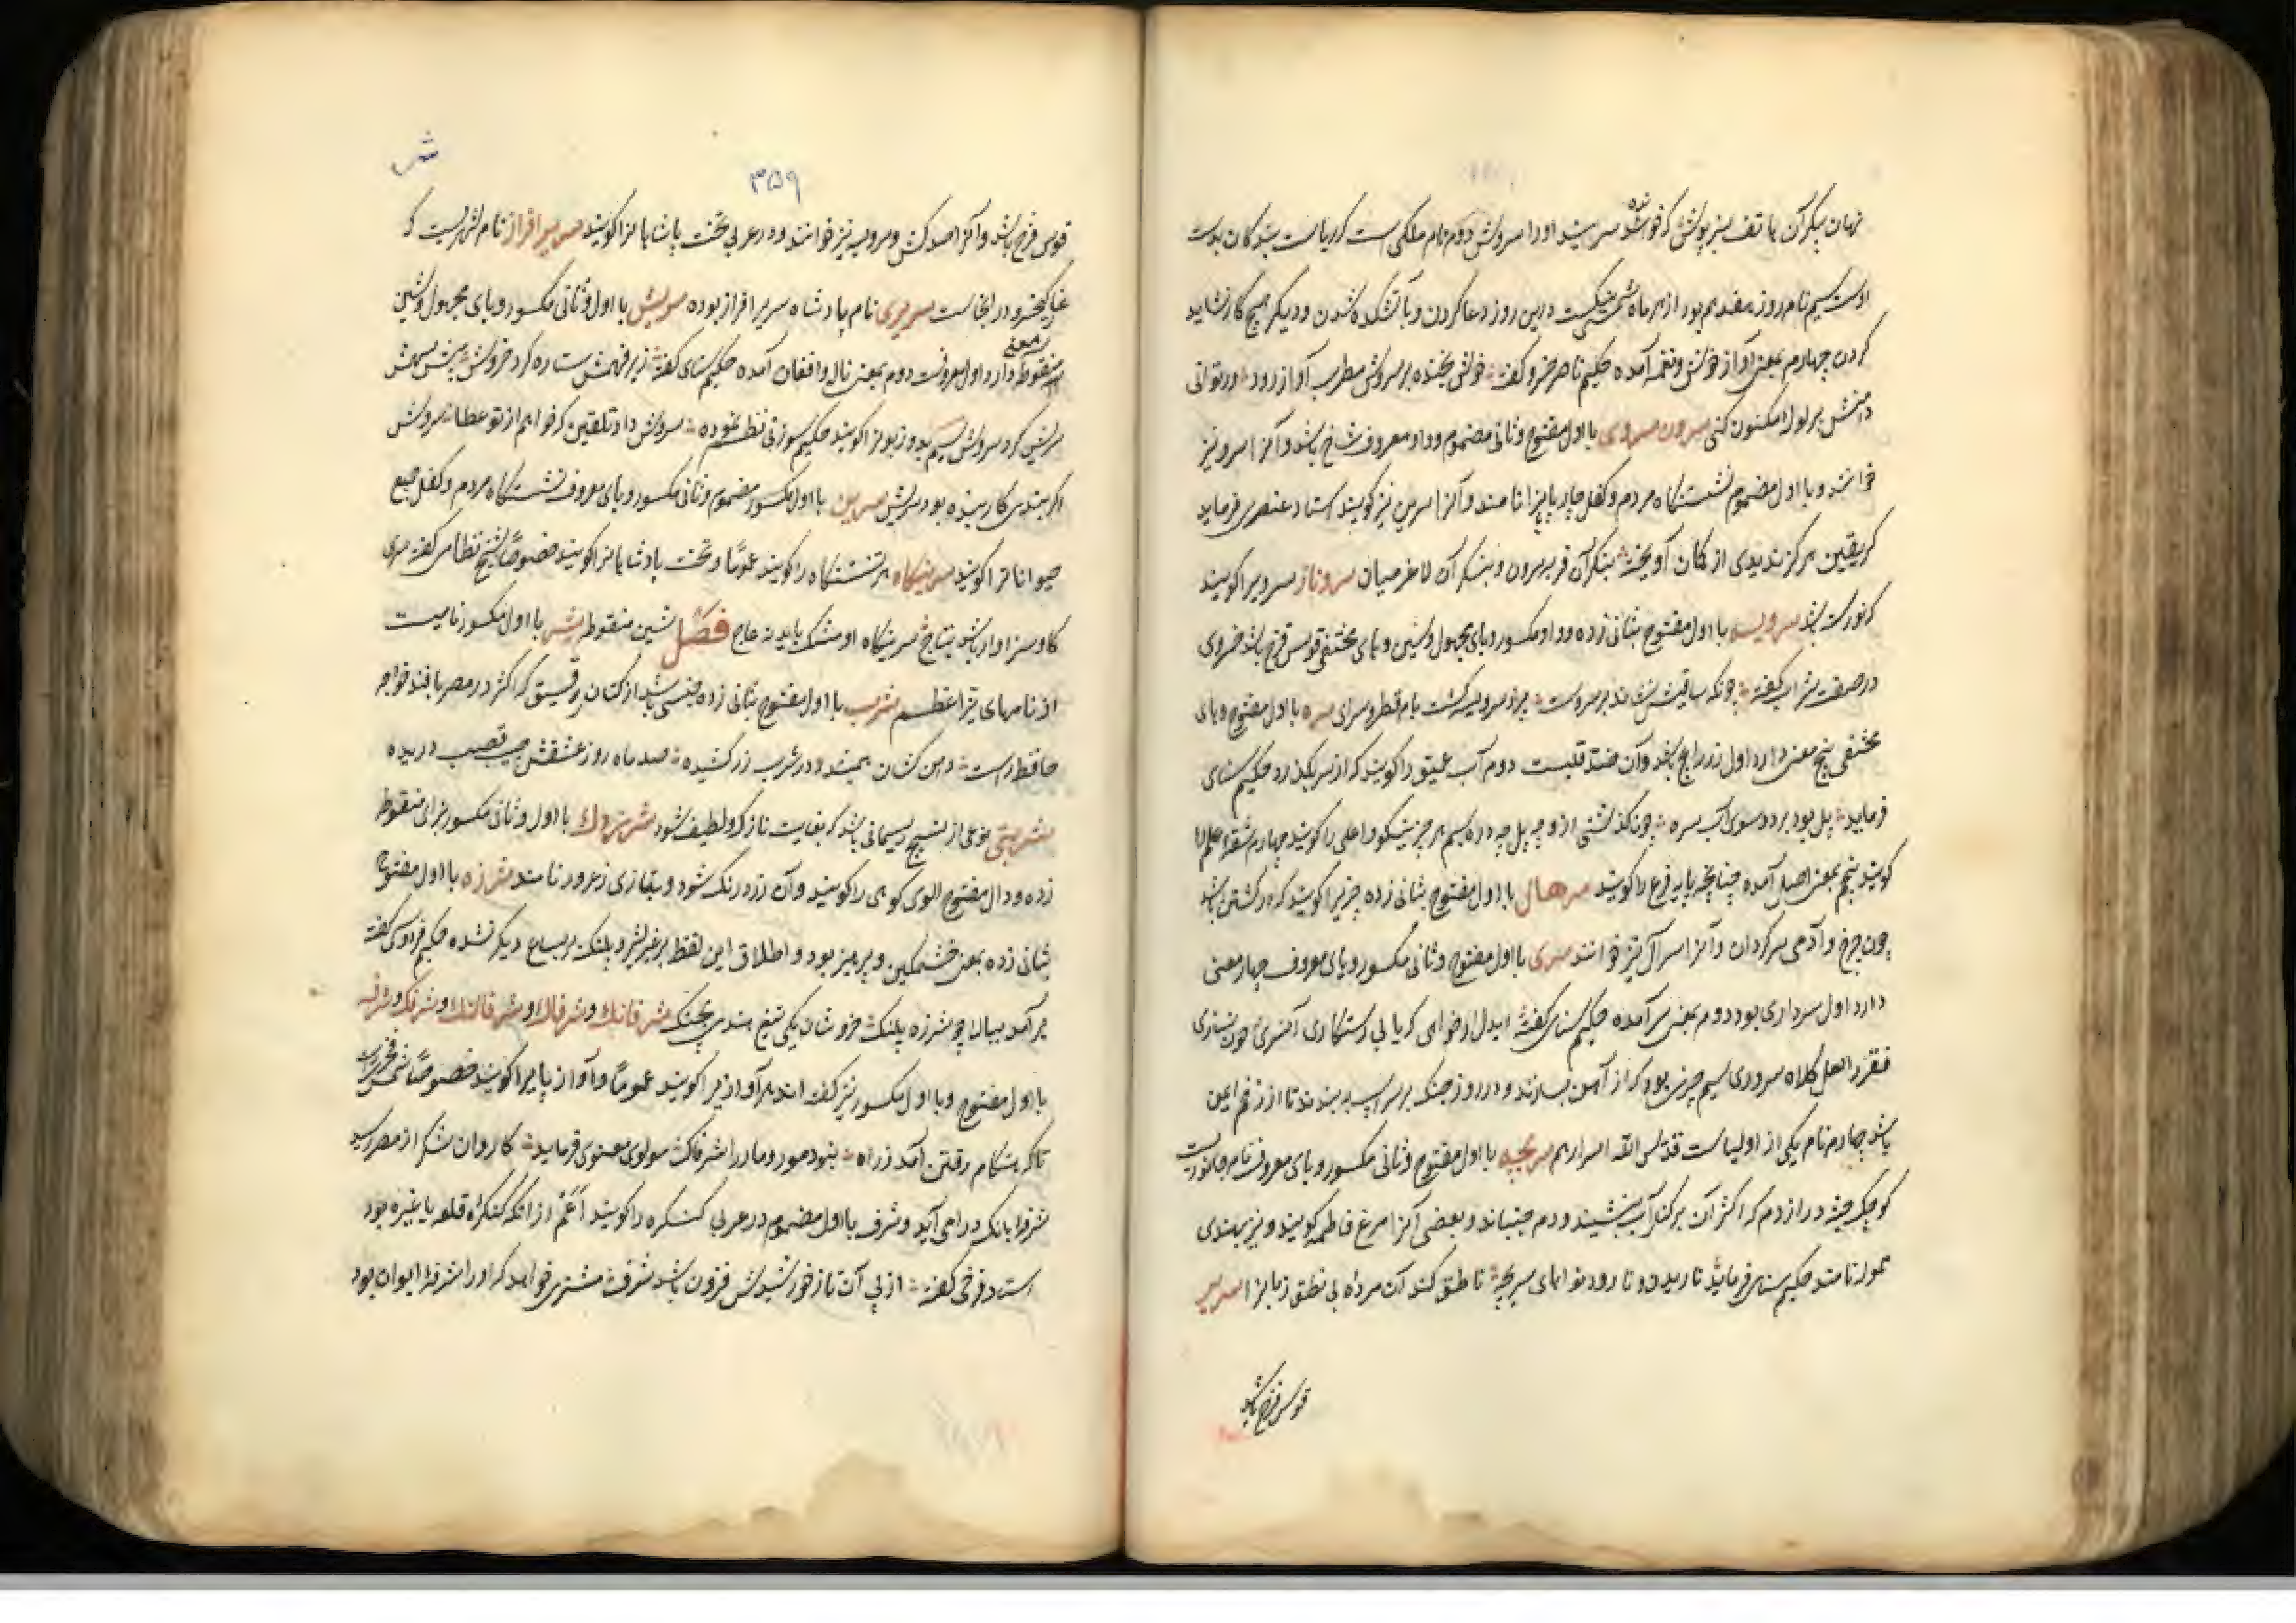 نهان پیکر آن هاتف سبز پوش که خواننده سرایید او را سروش دوم نام ملکی است که ریاست بندگان بدست
اوست سیم نام روز هفدهم بود از هر ماه شمسی نیکست درین روز دعا کردن و بآتشکده شدن و دیگر هیچ کار نشاید
کردن چهارم بمعنی آواز خوش و نغمه آمده حکیم ناصر خسرو گفته خوش بخنده بر سروش مطرب آواز رود ور توانی
دامنش پر لؤلؤ مکنون کنی سرون سروی با اول مفتوح و ثانی مضموم و واو معروف شاخ باشد و آنرا سرو نیز
خوانند و با اول مضموم نشستنگاه مردم و کفل چارپایانرا نامند و آنرا سرین نیز گویند استاد عنصری فرماید
گر یقین هرگز ندیدی از گمان آویخته بنگر آن فربه سرون و بنگر آن لاغر میان سروناز سرویرا گویند
که نورسته باشد سرویسه با اول مفتوح بثانی زده و واو مکسور و یای مجهول و سین و هاء مختفی قوس قزح باشد خسروی
در صفت شراب گفته چونکه ساقیش بر سر دست سرویسه گشت بام قطر و سرای سره با اول مفتوح و های
مختفی پنج معنی دارد اول زر رایج باشد و آن ضد قلبست دوم آب عمیق را گویند که از سر بگذرد حکیم سنای
فرماید پل بود بر دو سوی آب سره چون گذشتی ازو چه پل چه دره سیم هر چیز نیکو و اعلی را گویند چهارم شقه علم را
گویند پنجم بمعنی اصل آمده چنانچه پایه فرع را گویند سرهال با اول مفتوح بثانی زده چیزیرا گویند که در گشتن باشد
چون چرخ و آدمی سرگردان و آنرا سرآل نیز خوانند سری با اول مفتوح و ثانی مکسور و یای معروف چهار معنی
دارد اول سرداری بود دوم بمعنی سر آمده حکیم سنای گفته ایدل ار خواهی که یابی رستگاری آنسری چون نسازی
فقر را نعل کلاه سروری سیم چیزی بود که از آهن بسازند و در روز جنگ بر سر اسپ بندند تا از زخم ایمن
باشد چهارم نام یکی از اولیاست قدس الله اسرارهم سریچه با اول مفتوح و ثانی مکسور و یای معروف نام جانوریست
کوچک جثه دراز دم که اکثر آن بر کنار آب نشیند و دم جنباند و بعضی آنرا مرغ فاطمه گویند و نیز بهندی
ممولا نامند حکیم سنای فرماید تا رود نواهای سریچه ناطق کند آن مرده بی نطق زبانرا سریر
قوس قزح باشد
ش
۳۵۹
قوس قزح باشد و آنرا صدکش و سرویسه نیز خوانند و در عربی تخت پادشاهانرا گویند سریر افراز نام شهریست که
غار کیخسرو در انجاست سریری نام پادشاه سریر افراز بوده سریش با اول و ثانی مکسور و یای مجهول و شین
منقوطه دو معنی دارد اول معروفست دوم بمعنی ناله و افغان آمده حکیم سنای گفته زیر فهمش ستاره کرد خروش پیش سهمش
سریش کرد سروش سیم بد و زبونرا گویند حکیم سوزنی نظم نموده سروش داد تلقین که خواهم از تو عطا سروش
اگر بندی کار بنده بود سریش سرین با اول مکسور مضموم و ثانی مکسور و یای معروف نشستگاه مردم و کفل جمیع
حیواناترا گویند سرینگاه هر نشستنگاه را گویند عموما و تخت پادشاهانرا گویند خصوصا شیخ نظامی گفته سری
کاو سزاوار باشد بتاج سرینگاه او مشک باید نه عاج فصل شین منقوطه شر با اول مکسور نامیست
از نامهای نیّر اعظم شرب با اول مفتوح بثانی زده جنسی باشد از کتان رقیق که اکثر در مصر بافند خواجه
حافظ راست دامن کشان همیشد در شرب زر کشیده صد ماه رو ز عشقش جیب قصب دریده
شربتی نوعی از نسیج ریسمانی باشد که بغایت نازک و لطیف شود با اول و ثانی مکسور بزای منقوطه
زده و دال مفتوح الوی کوهی را گویند و آن زرد رنگ شود و بتازی زعرور نامند شرزه با اول مفتوح
بثانی زده بمعنی خشمگین و پرهیز بود و اطلاق این لفظ بر غیر شیر و پلنگ بر سباع دیگر نشده حکیم فردوسی گفته
بر آمد ببالا چو شرزه پلنگ خروشان یکی تیغ هندی بچنگ شرفانک و شرفاک و شرفالنگ و شرفک و شرفه
با اول مفتوح و با اول مکسور نیز گفته اند هر آواز را گویند عموما و آواز پایرا گویند خصوصا
تا که هنگام رفتن آمد ز راه نبود مور و مار را شرفاک مولوی معنوی فرماید کاروان شکر از مصر رسید
شرفه بانگ درا می آید و شرف با اول مضموم در عربی کنگره را گویند اعم از انکه کنگره قلعه یا غیره بود
استاد فرخی گفته از پی آن تا ز خورشیدش فزون باشد شرف مشتری خواهد که او را شرفه ایوان بود